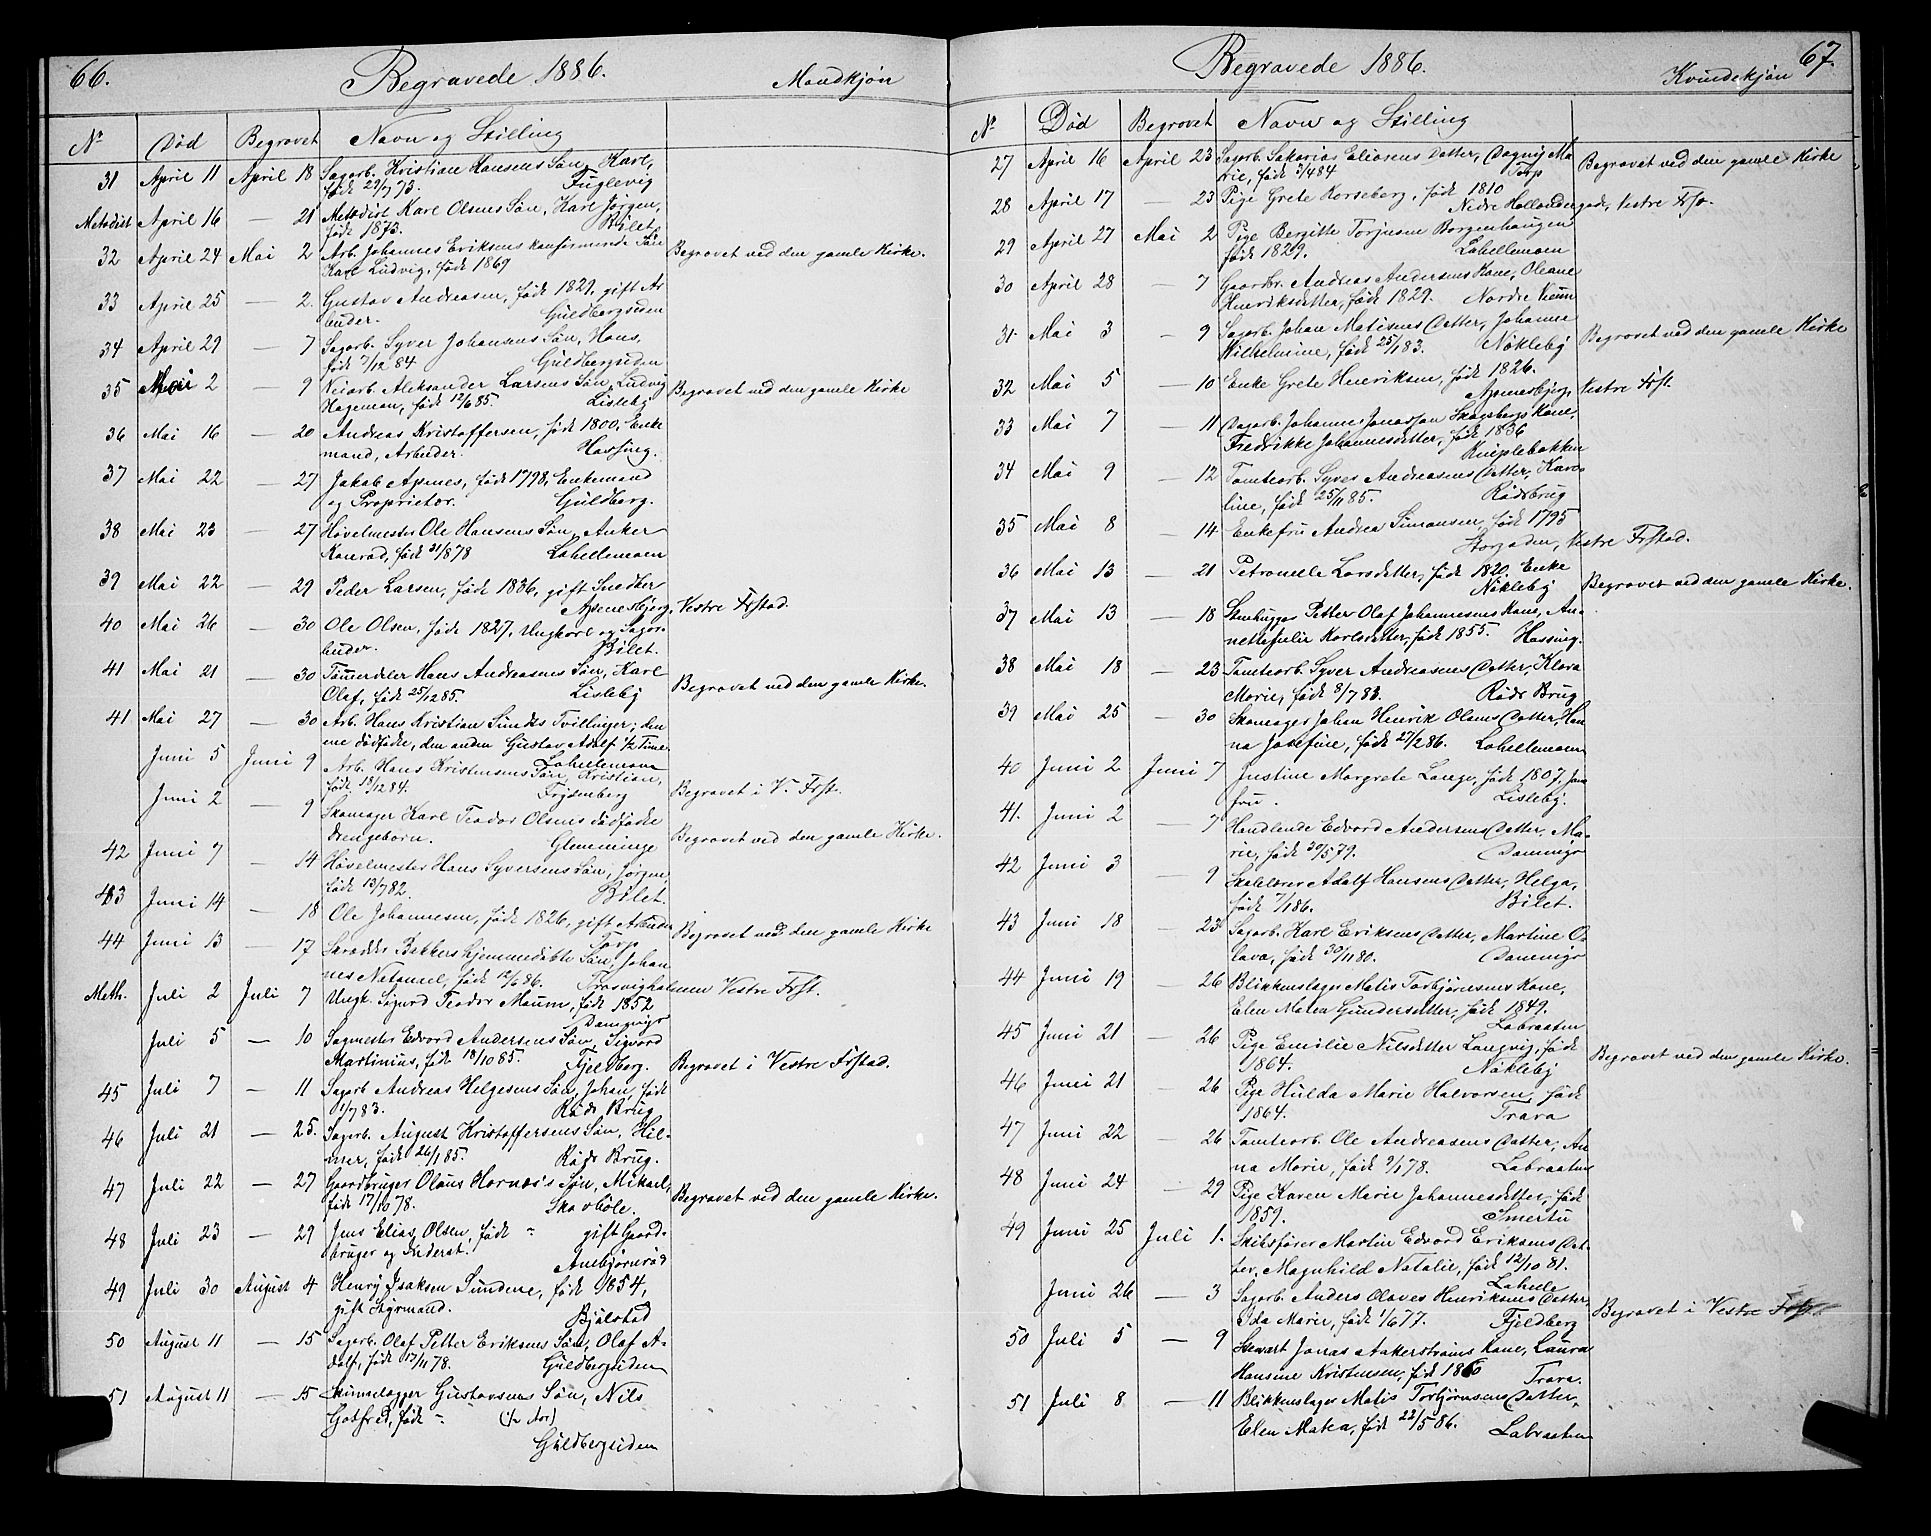 66.
Begravede 1886.
Mandkjøn
Nº Død Begravet Navn og Stilling
31 April 11 April 18 Sagarb. Kristian Hansens Søn, Karl,
født 22/7 73. Fuglevig
Metodist April 16 — 21 Metodist Karl Olsens Søn, Karl Jørgen,
født 1873. Bilet
32 April 24 Mai 2 Arb. Johannes Eriksens konfirmerede Søn Begravet ved den gamle Kirke.
Karl Ludvig, født 1869
33 April 25 — 2. Gustav Andreasen, født 1829, gift Ar
beider. Guldbergsiden
34 April 29 — 7 Sagarb. Syver Johansens Søn, Hans,
født 7/12 84 Guldbergsiden
35 Mai 2 — 9 Veiarb. Aleksander Larsens Søn, Ludvig Begravet ved den gamle Kirke
Hageman, født 12/6 85. Lisleby
36 Mai 16 — 20 Andreas Kristoffersen, født 1800, Enke
mand, Arbeider. Hassing.
37 Mai 22 — 27 Jakob Apenes, født 1798, Enkemand
og Proprietær. Guldberg.
38 Mai 23 — 27 Høvelmester Ole Hansens Søn, Anker
Konrad, født 31/8 78 Labellemoen
39 Mai 22 — 29 Peder Larsen, født 1836, gift Snedker
Apenesbjerg, Vestre Frstad.
40 Mai 26 — 30 Ole Olsen, født 1827, Ungkarl og Sagar-
beider. Bilet.
41 Mai 21 — 30 Tømmerdeler Hans Andreasens Søn, Karl
Olaf, født 25/12 85. Lisleby Begravet ved den gamle Kirke.
41 Mai 27 — 30 Arb. Hans Kristian Sundts Tvillinger; den
ene dødfødt, den anden Gustav Adolf 1/2 Time
Labellemoen
Juni 5 Juni 9 Arb. Hans Kristensens Søn, Kristian,
født 13/12 84. Frydenberg Begravet i V. Frst.
Juni 2 — 9 Skomager Karl Teodor Olsens dødfødte
drengebarn. Glemminge Begravet ved den gamle Kirke.
42 Juni 7 — 14 Høvelmester Hans Syversens Søn, Jørgen,
født 13/7 82. Bilet.
43 Juni 14 — 18 Ole Johannesen, født 1826, gift Arbeider
Torp Begravet ved den gamle Kirke
44 Juni 13 — 17 Bakkers hjemmedøbte Søn, Johan
nes Natanael, født 12/6 86. Trosvigholmen Vestre Frst.
Meth. Juli 2 Juli 7 Ungk. Sigurd Teodor Maum, født 1852
Damvigs
Juli 5 — 10 Sagmester Edvard Andersens Søn, Sigvard
Martinius, født 18/10 85. Fjeldberg. Begravet i Vestre Frstad.
45 Juli 7 — 11 Sagarb Andreas Helgesens Søn, Johan, født
1/7 83. Råds Brug
46 Juli 21 — 25. Sagarb. August Kristoffersens Søn, Hil-
mer, født 26/1 85. Råds Brug.
47 Juli 22 — 27 Gaardbruger Olaus Hornæs's Søn, Mikael,
født 17/10 78. Skovbøle. Begravet ved den gamle Kirke.
48 Juli 23 — 29 Jens Elias Olsen, født " gift Gaard-
bruger og Federst.
Ambjørnrød
49 Juli 30 August 4 Henry Isaksen Sundene, født 1854,
gift Styrmand.
Bjølstad
50 August 11 — 15 Sagarb. Olaf Petter Eriksens Søn, Olaf A-
dolf, født 17/11 78. Guldbergsiden
51 August 11 — 15 Gustavsens Søn, Nils
Gotfred, født - (1/2 Aar)
Guldbergsiden
67.
Begravede 1886.
Kvindekjøn
Nº Død Begravet Navn og Stilling
27 April 16 April 23 Sagarb. Sakarias Eliasens Datter, Dagny Ma
rie, født 3/4 84 Torp Begravet ved den gamle Kirke
28 April 17 — 23 Pige Grete Korseberg, født 1810
Nedre Hollændergade, Vestre Frst.
29 April 27 Mai 2 Pige Bergitte Torjusen Borgenhaugen
født 1829. Labellemoen
30 April 28 — 7 Gaardbr. Andreas Andersens Kone, Oleane
Henriksdatter, født 1829. Nordre Veum
31 Mai 3 — 9 Sagarb. Johan Matisens Datter, Johanne
Wilhelmine, født 25/1 83. Nøkleby Begravet ved den gamle Kirke
32 Mai 5 — 10 Enke Grete Henriksen, født 1826.
Apenesbjerg, Vestre Frst.
33 Mai 7 — 11 Dagarb. Johannes Jonassen Skogsbergs Kone,
Fredrikke Johannesdatter, født 1836
Kniplebakken
34 Mai 9 — 12 Tomtearb. Syver Andreasens Datter, Karo
line, født 25/11 85. Rådsbrug
35 Mai 8 — 14 Enkefru Andrea Simonsen, født 1795
Storgaden, Vestre Frstad.
36 Mai 13 — 21 Petronelle Larsdatter, født 1820. Enke
Nøkleby Begravet ved den gamle Kirke.
37 Mai 13 — 18 Stenhugger Petter Olaf Johannesens Kone, An-
nette Julie Karlsdatter, født 1855. Hassing.
38 Mai 18 — 23 Tomtearb. Syver Andreasens Datter, Klara
Marie, født 8/7 83. Råds Brug
39 Mai 25 — 30 Skomager Johan Henrik Olsens Datter, Han
na Josefine, født 27/2 86. Labellemoen
40 Juni 2 Juni 7 Justine Margrete Lange, født 1807. Jom
fru. Lisleby.
41. Juni 2 — 7 Handlende Edvard Andersens Datter, Ma-
rie, født 30/5 79. Damvigs
42 Juni 3 — 9 Skolelærer Adolf Hansens Datter, Helga,
født 7/1 86. Bilet.
43 Juni 18 — 23 Sagarb. Karl Eriksens Datter, Martine O-
lava, født 30/11 80. Damvigs
44 Juni 19 — 26 Blikkenslager Matis Torbjørnsens Kone,
Elen Matea Gundersdatter, født 1849.
Labraaten
45 Juni 21 — 26 Pige Emilie Nilsdatter Langvig, født
1864. Nøkleby Begravet ved den gamle Kirke.
46 Juni 21 — 26 Pige Hulda Marie Halvorsen, født
1864. Trara
47 Juni 22 — 26 Tomtearb. Ole Andreasens Datter, An
na Marie, født 9/1 78. Labraaten
48 Juni 24 — 29 Pige Karen Marie Johannesdatter, født
1859. Smertu
49 Juni 25 Juli 1. Skibsfører Martin Edvard Eriksens Dat-
ter, Magnhild Natalie, født 12/10 81.
Labelle
Juni 26 — 3 Sagarb. Anders Olaves Henriksens Datter,
Ida Marie, født 1/6 77. Fjeldberg Begravet i Vestre Frst
50 Juli 5 — 9 Stewart Jonas Aakerstrøms Kone, Laura
Hansine Kristensen, født 1860 Trara.
51 Juli 8 — 11 Blikkenslager Matis Torbjørnsens Datter,
Elen Matea, født 22/5 86. Labraaten